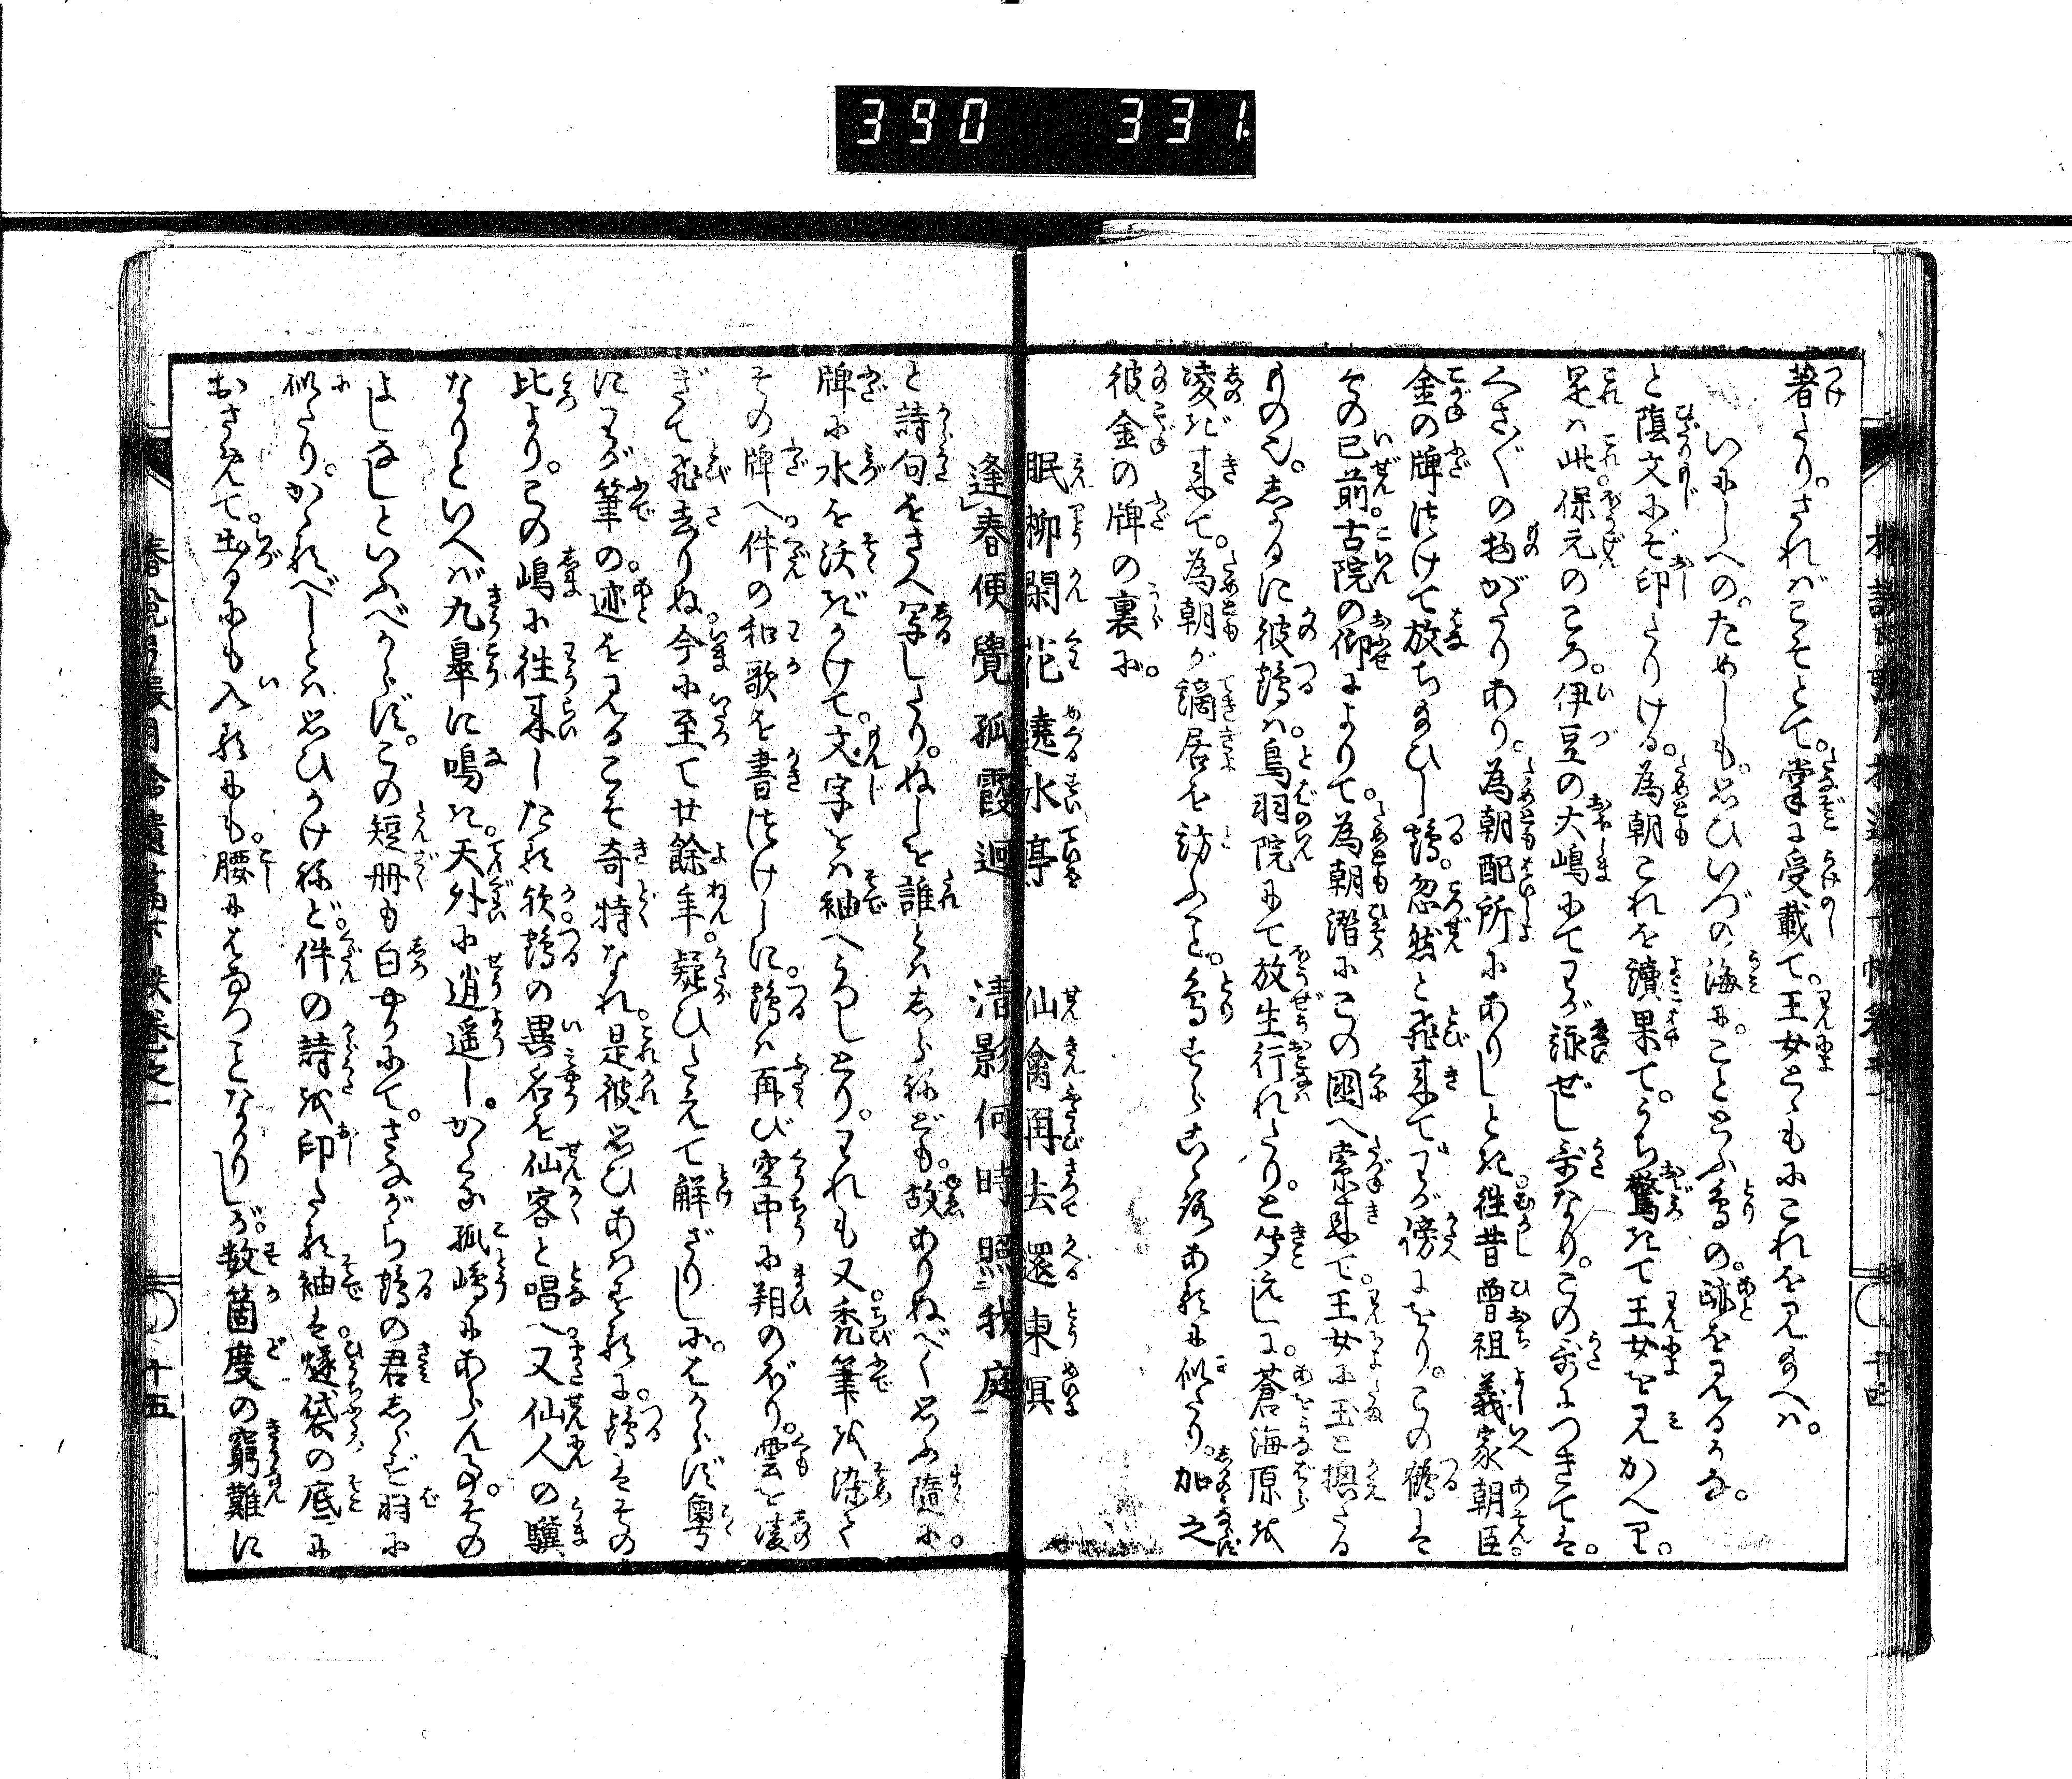 390 331
著たり。さればこそとて。掌に受載て。王女もろともにこれを見給へは。
いにしへの。ためしも。思ひいづの海に。こととふ鳥の。跡を見るかな。
と陰文にぞ印たりける。為朝これを讀果て。うち驚きて王女を見かへり。
是は此保元のころ。伊豆の大嶋にてわが詠ぜし歌なり。この歌につきては。
くさ〴〵の物がたりあり。為朝配所にありしとき。往昔曾祖義家朝臣。
金の牌つけて放ち給ひし鶴。忽然と飛来てわが傍にをり。この鶴は
その已前古院の仰によりて。為朝潜にこの國へ索来て。王女に玉と換たる
もの也。しかるに彼鶴は。鳥羽院にて放生行れたり。と聞えしに。蒼海原を
凌ぎ来て。為朝が謫居を訪ふこと。鳥すらこゝろあるに似たり。加之
彼金の牌の裏に。
眠柳閑花遶水亭 仙禽再去還東溟
逢春便覺孤霞迥 清影何時照我庭
と詩句をさへ写したり。ぬしを誰とはしらねども。故ありぬべく思ふ隨に。
牌に水を沃ぎかけて。文字をは袖へうつしとり。われも又禿筆を染て
その牌へ。件の和歌を書つけしに。鶴は再び空中に翔のぼり。雲を凌
ぎて飛去りぬ。今に至て廿餘年。疑ひたえて解ざりしに。はからず粤
にわが筆の。迹を見るこそ奇特なれ。是彼思ひあはするに。鶴はその
比より。この嶋に往来したる歟。鶴の異名を仙客と唱へ。又仙人の騏
なりといへば。九皐に鳴き。天外に逍遥し。かゝる孤嶋にあらん事。その
よしなしといふべからず。この短冊も白ければ。さながら鶴の君しらず羽に
似たり。かゝるべしとは思ひかけねど。件の詩を印たる袖は。燧袋の底に
おさめて。出るにも入るにも。腰にはなつことなかりしが。数箇度の窮難に
十五